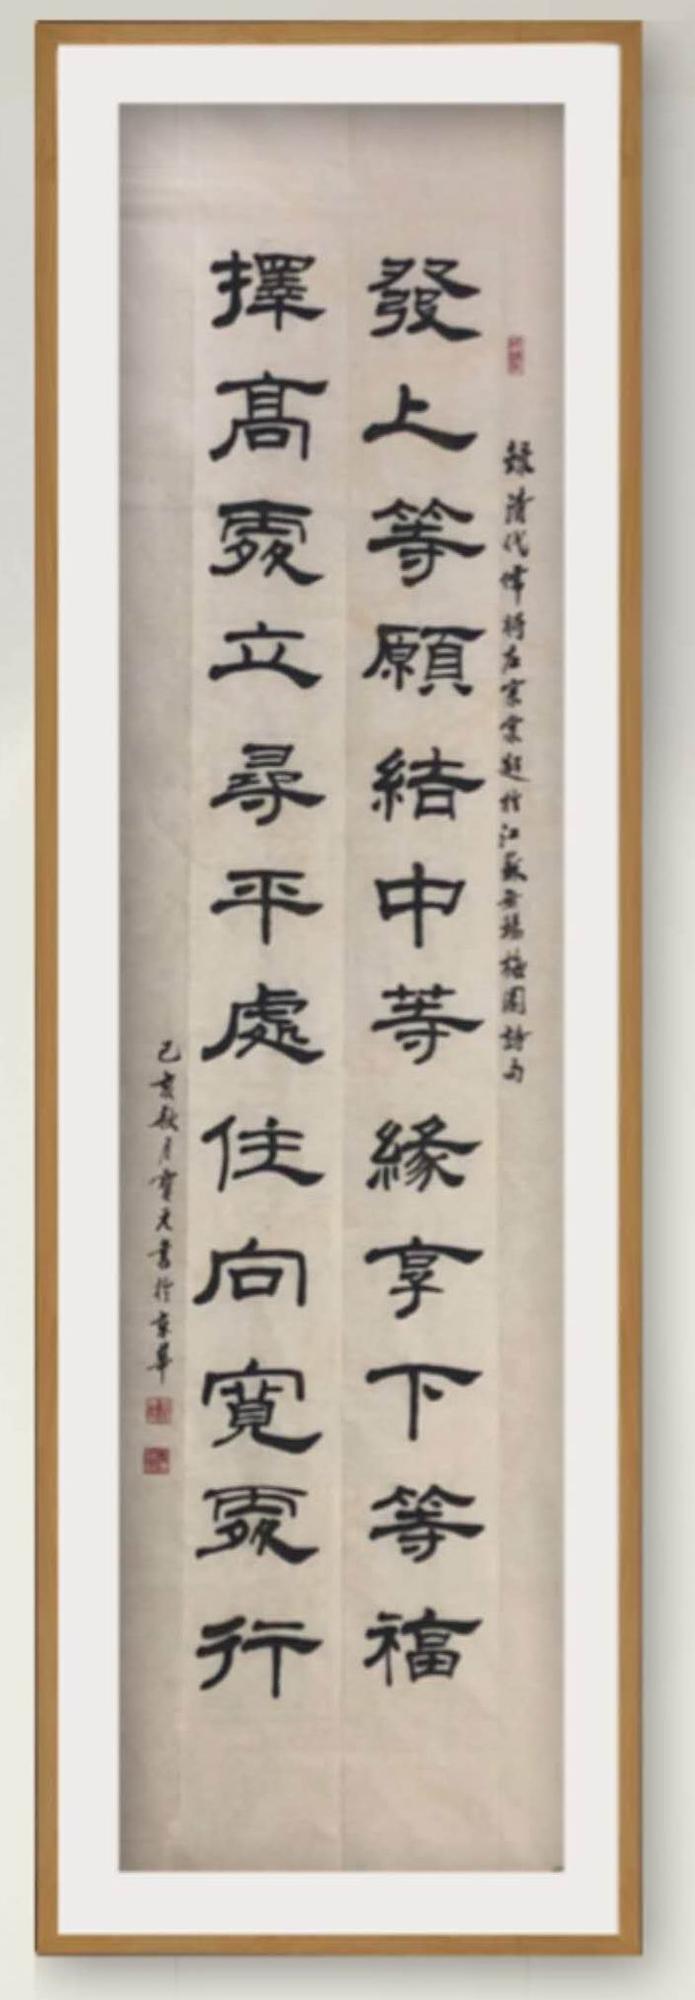 錄清代偉將左宗棠題於江蘇無錫梅園詩句
發上等願結中等緣享下等福
擇高處立尋平處住向寬處行
己亥秋月寶元書於京華